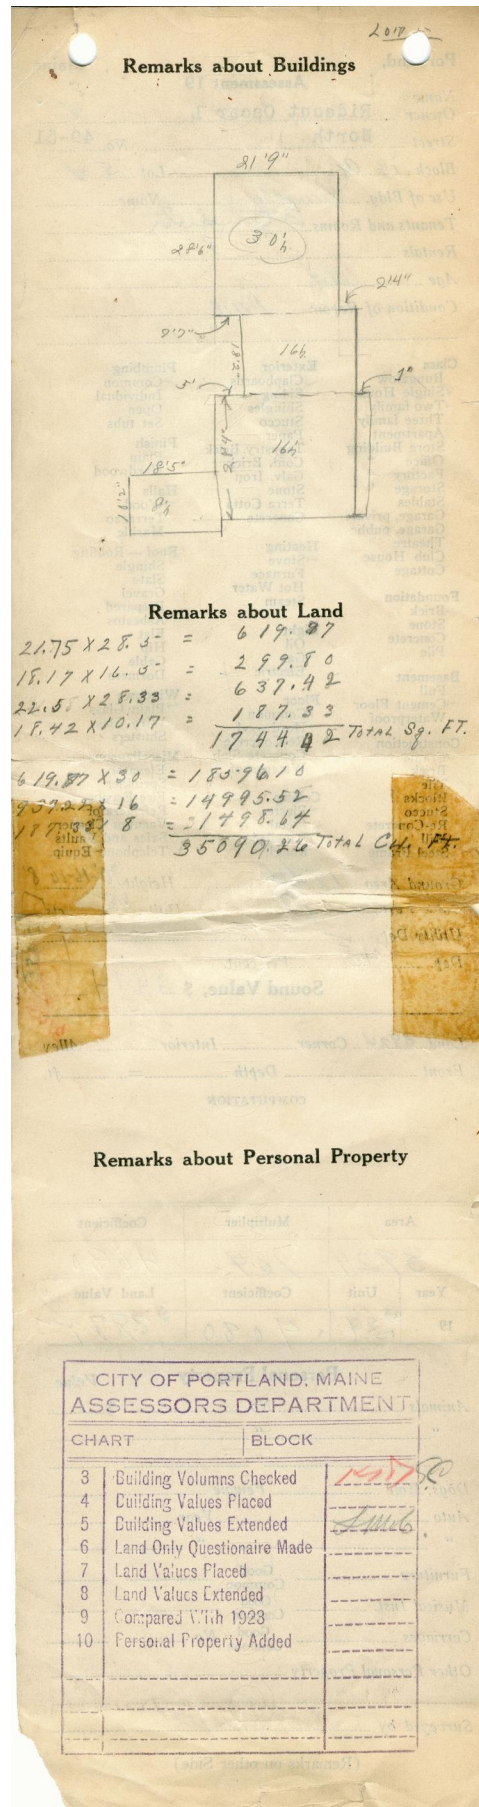 Remarks about Buildings
21'9"
30'h
28'6"
2'4"
16h
18'2"
5'
1"
16h
28'4"
18'5"
10'2"
8h
Remarks about Land
21.75 X 28.5 = 619.87
18.17 X 16.5 = 299.80
22.5 X 28.33 = 637.42
18.42 X 10.17 = 187.33
1744.42 Total Sq. FT.
619.87 X 30 = 18596.10
937.22 X 16 = 14995.52
187.33 X 8 = 1498.64
35090.26 Total Cu. Ft.
Remarks about Personal Property
CITY OF PORTLAND, MAINE
ASSESSORS DEPARTMENT
CHART BLOCK
3 Building Volumns Checked
4 Building Values Placed
5 Building Values Extended
6 Land Only Questionaire Made
7 Land Values Placed
8 Land Values Extended
9 Compared With 1923
10 Personal Property Added